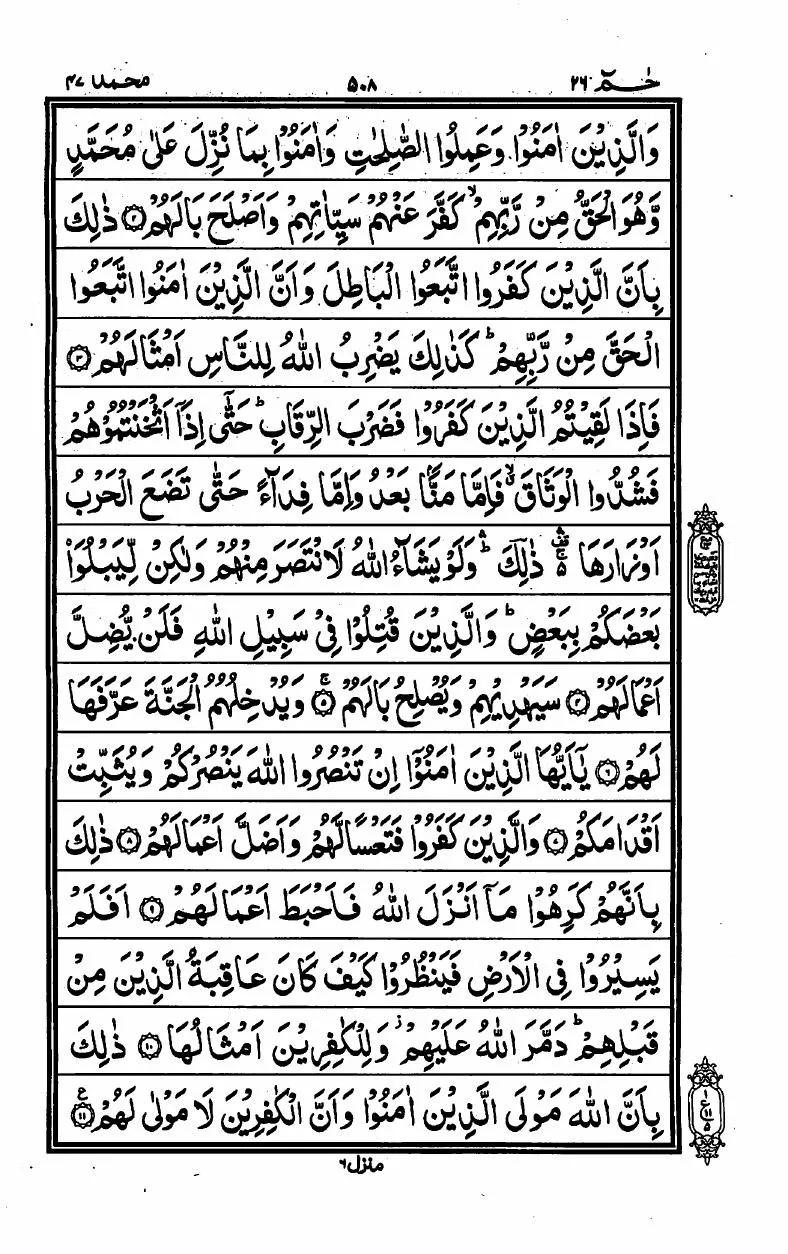 حٰمٓ ٢٦ ٥٠٨ محمد ٤٧
وَالَّذِيْنَ اٰمَنُوْا وَعَمِلُوا الصّٰلِحٰتِ وَاٰمَنُوْا بِمَا نُزِّلَ عَلٰى مُحَمَّدٍ
وَّهُوَ الْحَقُّ مِنْ رَّبِّهِمْ ۙ كَفَّرَ عَنْهُمْ سَيِّاٰتِهِمْ وَاَصْلَحَ بَالَهُمْ ﴿٢﴾ ذٰلِكَ
بِاَنَّ الَّذِيْنَ كَفَرُوا اتَّبَعُوا الْبَاطِلَ وَاَنَّ الَّذِيْنَ اٰمَنُوا اتَّبَعُوا
الْحَقَّ مِنْ رَّبِّهِمْ ؕ كَذٰلِكَ يَضْرِبُ اللّٰهُ لِلنَّاسِ اَمْثَالَهُمْ ﴿٣﴾
فَاِذَا لَقِيْتُمُ الَّذِيْنَ كَفَرُوْا فَضَرْبَ الرِّقَابِ ؕ حَتّٰۤى اِذَاۤ اَثْخَنْتُمُوْهُمْ
فَشُدُّوا الْوَثَاقَ ۙ فَاِمَّا مَنًّۢا بَعْدُ وَاِمَّا فِدَآءً حَتّٰى تَضَعَ الْحَرْبُ
اَوْزَارَهَا ۛ۬ ذٰلِكَ ۛؕ وَلَوْ يَشَآءُ اللّٰهُ لَانْتَصَرَ مِنْهُمْ وَلٰكِنْ لِّيَبْلُوَا۟
بَعْضَكُمْ بِبَعْضٍ ؕ وَالَّذِيْنَ قُتِلُوْا فِيْ سَبِيْلِ اللّٰهِ فَلَنْ يُّضِلَّ
اَعْمَالَهُمْ ﴿٤﴾ سَيَهْدِيْهِمْ وَيُصْلِحُ بَالَهُمْ ۚ﴿٥﴾ وَيُدْخِلُهُمُ الْجَنَّةَ عَرَّفَهَا
لَهُمْ ﴿٦﴾ يٰۤاَيُّهَا الَّذِيْنَ اٰمَنُوْۤا اِنْ تَنْصُرُوا اللّٰهَ يَنْصُرْكُمْ وَيُثَبِّتْ
اَقْدَامَكُمْ ﴿٧﴾ وَالَّذِيْنَ كَفَرُوْا فَتَعْسًا لَّهُمْ وَاَضَلَّ اَعْمَالَهُمْ ﴿٨﴾ ذٰلِكَ
بِاَنَّهُمْ كَرِهُوْا مَاۤ اَنْزَلَ اللّٰهُ فَاَحْبَطَ اَعْمَالَهُمْ ﴿٩﴾ اَفَلَمْ
يَسِيْرُوْا فِي الْاَرْضِ فَيَنْظُرُوْا كَيْفَ كَانَ عَاقِبَةُ الَّذِيْنَ مِنْ
قَبْلِهِمْ ؕ دَمَّرَ اللّٰهُ عَلَيْهِمْ ؗ وَلِلْكٰفِرِيْنَ اَمْثَالُهَا ﴿١٠﴾ ذٰلِكَ
بِاَنَّ اللّٰهَ مَوْلَى الَّذِيْنَ اٰمَنُوْا وَاَنَّ الْكٰفِرِيْنَ لَا مَوْلٰى لَهُمْ ۠﴿١١﴾
١
ع ١١
٥
منزل ٦